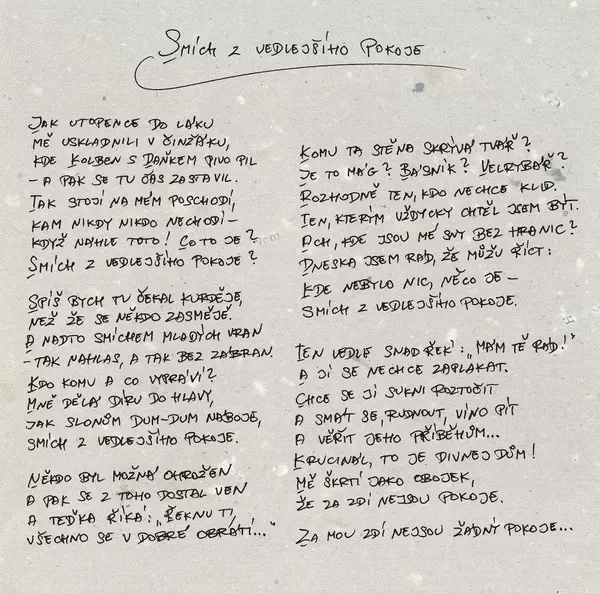 Smích z vedlejšího pokoje
Jak utopence do láku
mě uskladnili v činžáku,
kde Kolben s Daňkem pivo pil
– a pak se tu čas zastavil.
Tak stojí na mém poschodí,
kam nikdy nikdo nechodí –
když náhle toto! Co to je?
Smích z vedlejšího pokoje?
Spíš bych tu čekal kurděje,
než že se někdo zasměje.
A nadto smíchem mladých vran
– tak nahlas, a tak bez zábran.
Kdo komu a co vypráví?
Mně dělá díru do hlavy,
jak slonům dum-dum náboje,
smích z vedlejšího pokoje.
Někdo byl možná ohrožen
a pak se z toho dostal ven
a teďka říká: „Řeknu ti,
všechno se v dobré obrátí..."
Komu ta stěna skrývá tvář?
Je to mág? Básník? Velrybář?
Rozhodně ten, kdo nechce klid.
Ten, kterým vždycky chtěl jsem být.
Ach, kde jsou mé sny bez hranic?
Dneska jsem rád, že můžu říct:
Kde nebylo nic, něco je –
smích z vedlejšího pokoje.
Ten vedle snad řek: „Mám tě rád!"
A jí se nechce zaplakat.
Chce se jí sukni roztočit
a smát se, rudnout, víno pít
a věřit jeho příběhům...
Krucinál, to je divnej dům!
Mě škrtí jako obojek,
že za zdí nejsou pokoje.
Za mou zdí nejsou žádný pokoje...